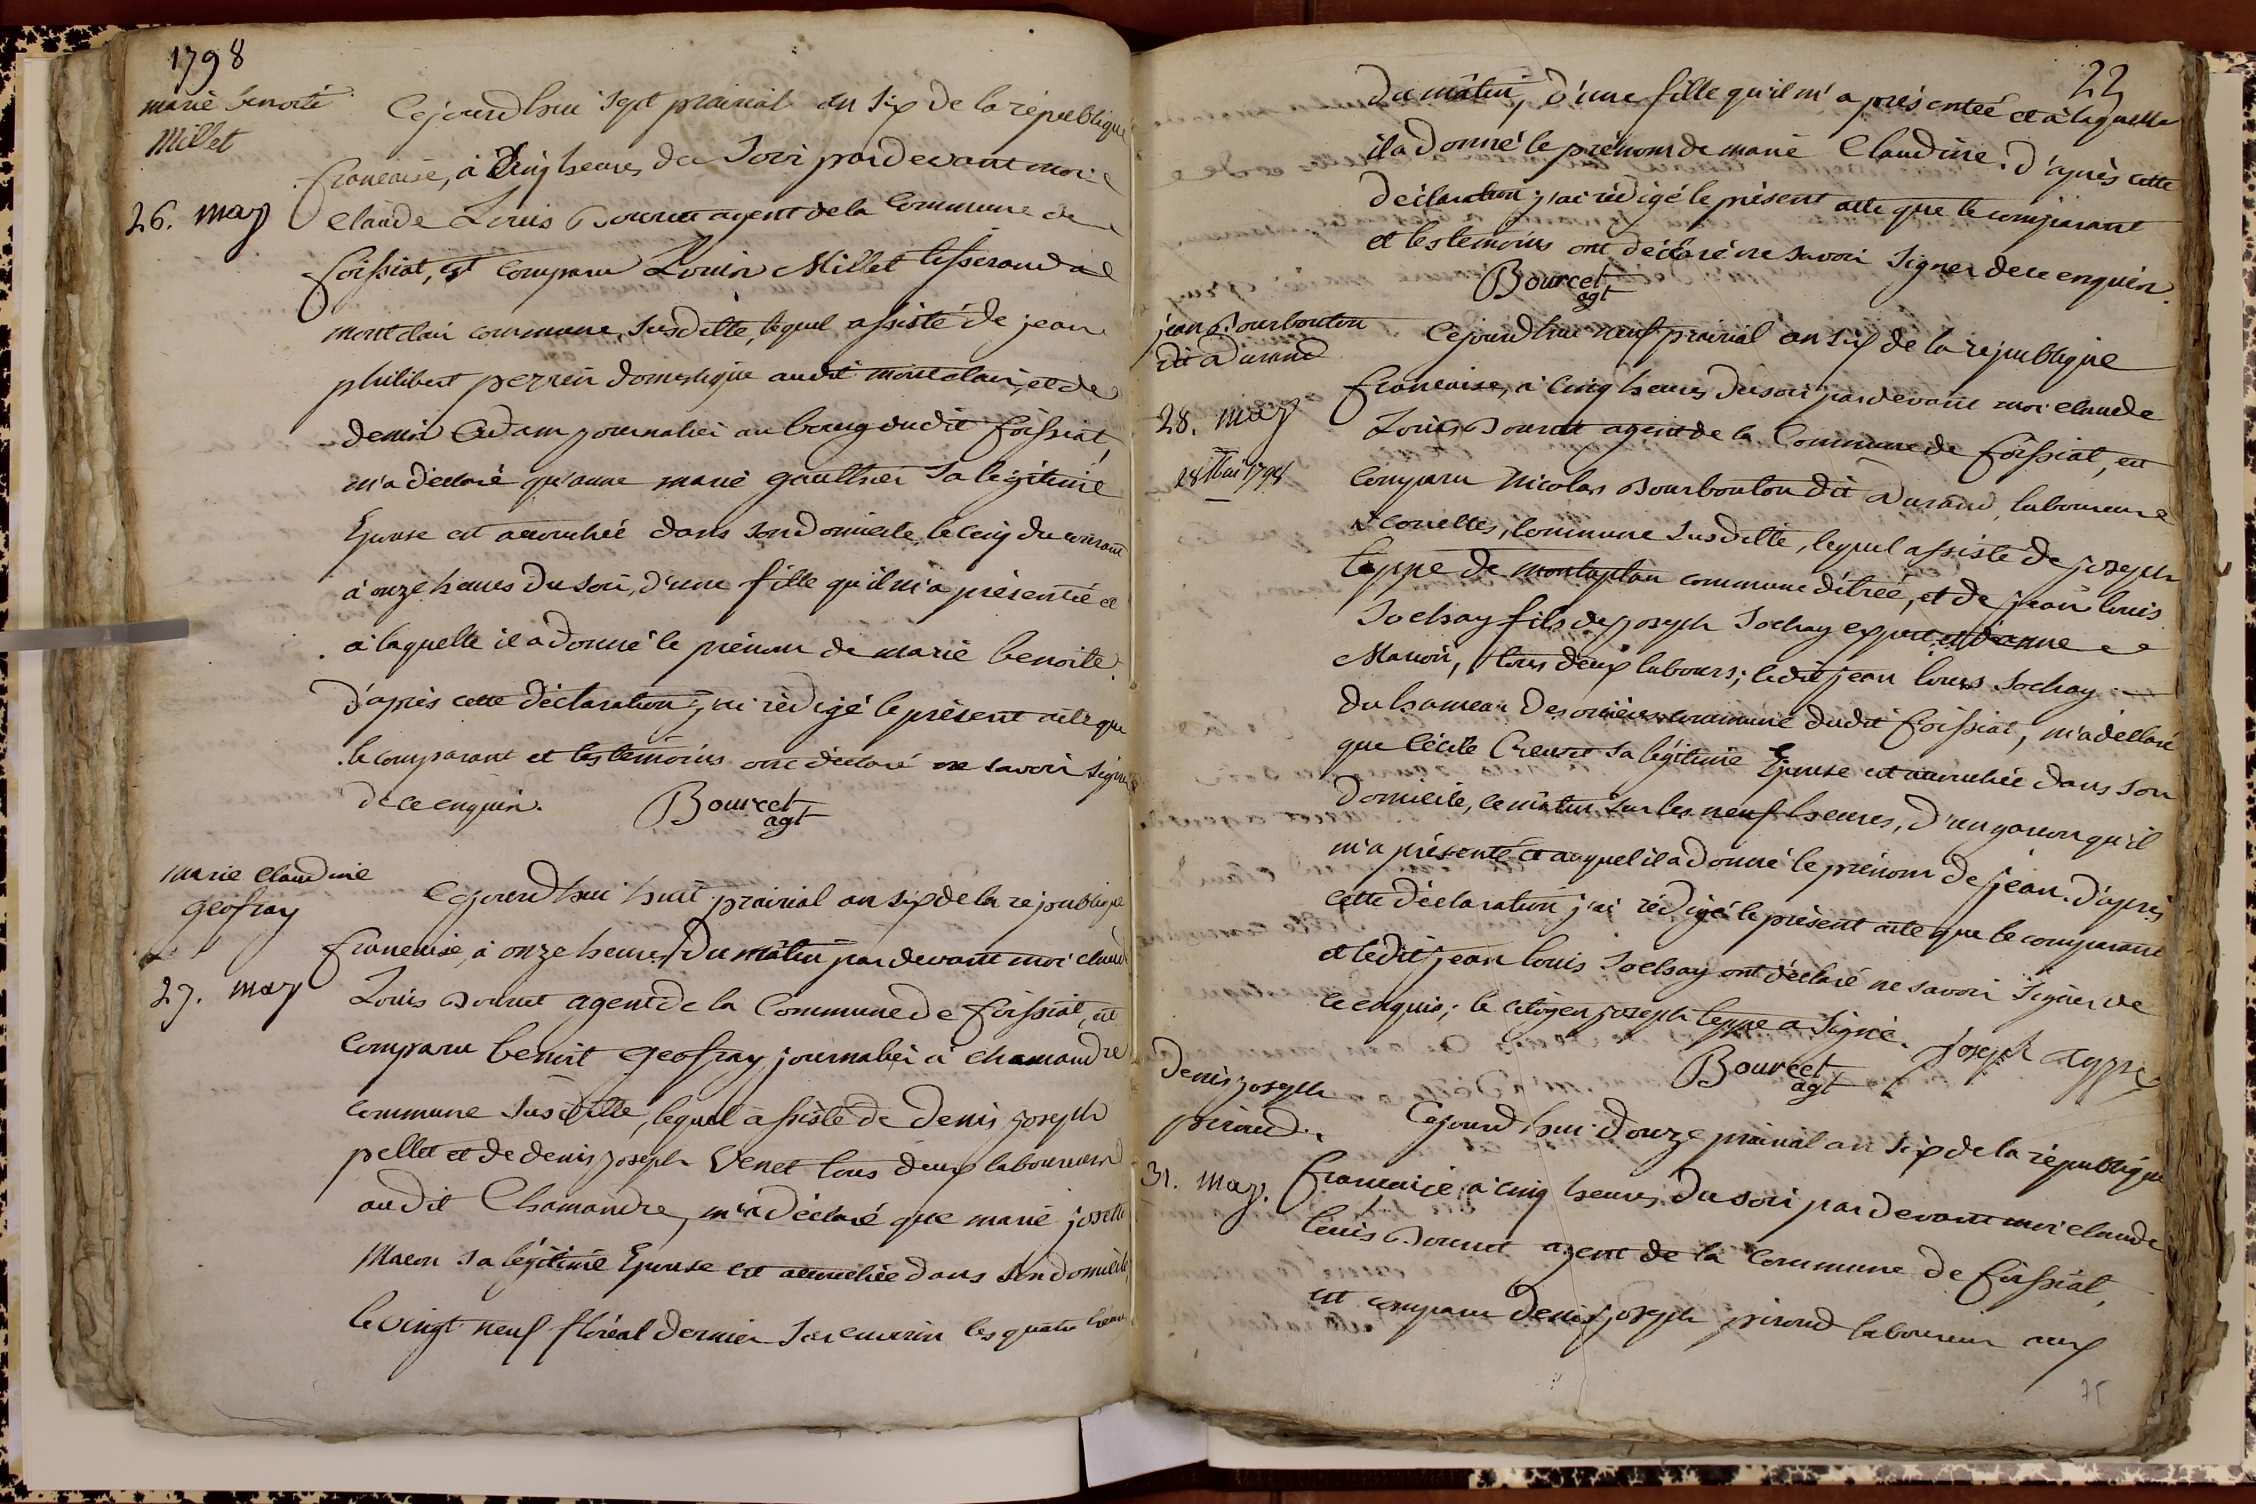 1798
marie benoite
Millet
26. may
Cejourdhui sept prairial an six de la république
francaise, à Cinq heures du Soir pardevant moi
Claude Louis Bourcet agent de la Commune de
foissiat, est comparu Louis Millet tisserand à
montclair commune susditte, lequel assisté de jean
philibert perrin domestique audit montclair, et de
denis Adam journalier au bourg dudit foissiat,
m'a déclaré qu'anne marie gaulthier sa légitime
Epouse est accouchée dans son domicile le cinq du courant
à onze heures du soir, d'une fille qu'il m'a présentée et
à laquelle il a donné le prénom de marie benoite.
d'après cette déclaration j'ai rédigé le présent acte que
le comparant et les témoins ont déclaré ne savoir signer
de ce enquis.
Bourcet
agt
marie Claudine
geofray
27. may
Cejourdhui huit prairial an six de la republique
francaise, à onze heures du mâtin pardevant moi claude
Louis Bourcet agent de la Commune de foissiat, est
Comparu benoit geofray journalier à chamandre
commune susditte, lequel assisté de denis joseph
pellet et de denis joseph Venet tous deux laboureurs
audit Chamandre, m'a déclaré que marie josette
Macon sa légitime Epouse est accouchée dans son domicile,
le vingt neuf floréal dernier sur environ les quatre heures
22
du mâtin, d'une fille qu'il m'a présentée et à laquelle
il a donné le prénom de marie Claudine. d'après cette
déclaration j'ai rédigé le présent acte que le comparant
et les témoins ont déclaré ne savoir signer de ce enquis.
Bourcet
agt
jean Bourbouton
dit Durand
28. may
28 Mai 1798
Cejourdhui neuf prairial an six de la republique
francaise, à cinq heures du soir pardevant moi claude
Louis Bourcet agent de la Commune de foissiat, est
comparu Nicolas Bourbouton dit Durand, laboureur
commune susditte, lequel assisté de joseph
teppe de commune d'étrée, et de jean louis
Sochay fils de joseph Sochay expert et d'anne
Manon, tous deux labours; ledit jean louis Sochay
du hameau commune dudit foissiat, m'a déclaré
que Cécile Creuset sa légitime Epouse est accouchée dans son
domicile, ce mâtin sur les neuf heures, d'un garcon qu'il
m'a présenté et auquel il a donné le prénom de jean. d'après
cette déclaration j'ai rédigé le présent acte que le comparant
et ledit jean louis Sochay ont déclaré ne savoir signer de
ce enquis; le citoyen joseph teppe a signé.
Bourcet
agt
joseph teppe
Denis joseph
piroud.
31. may.
Cejourdhui douze prairial an six de la république
francaise à cinq heures du soir pardevant moi claude
louis Bourcet agent de la Commune de foissiat,
est comparu denis joseph piroud laboureur aux
75